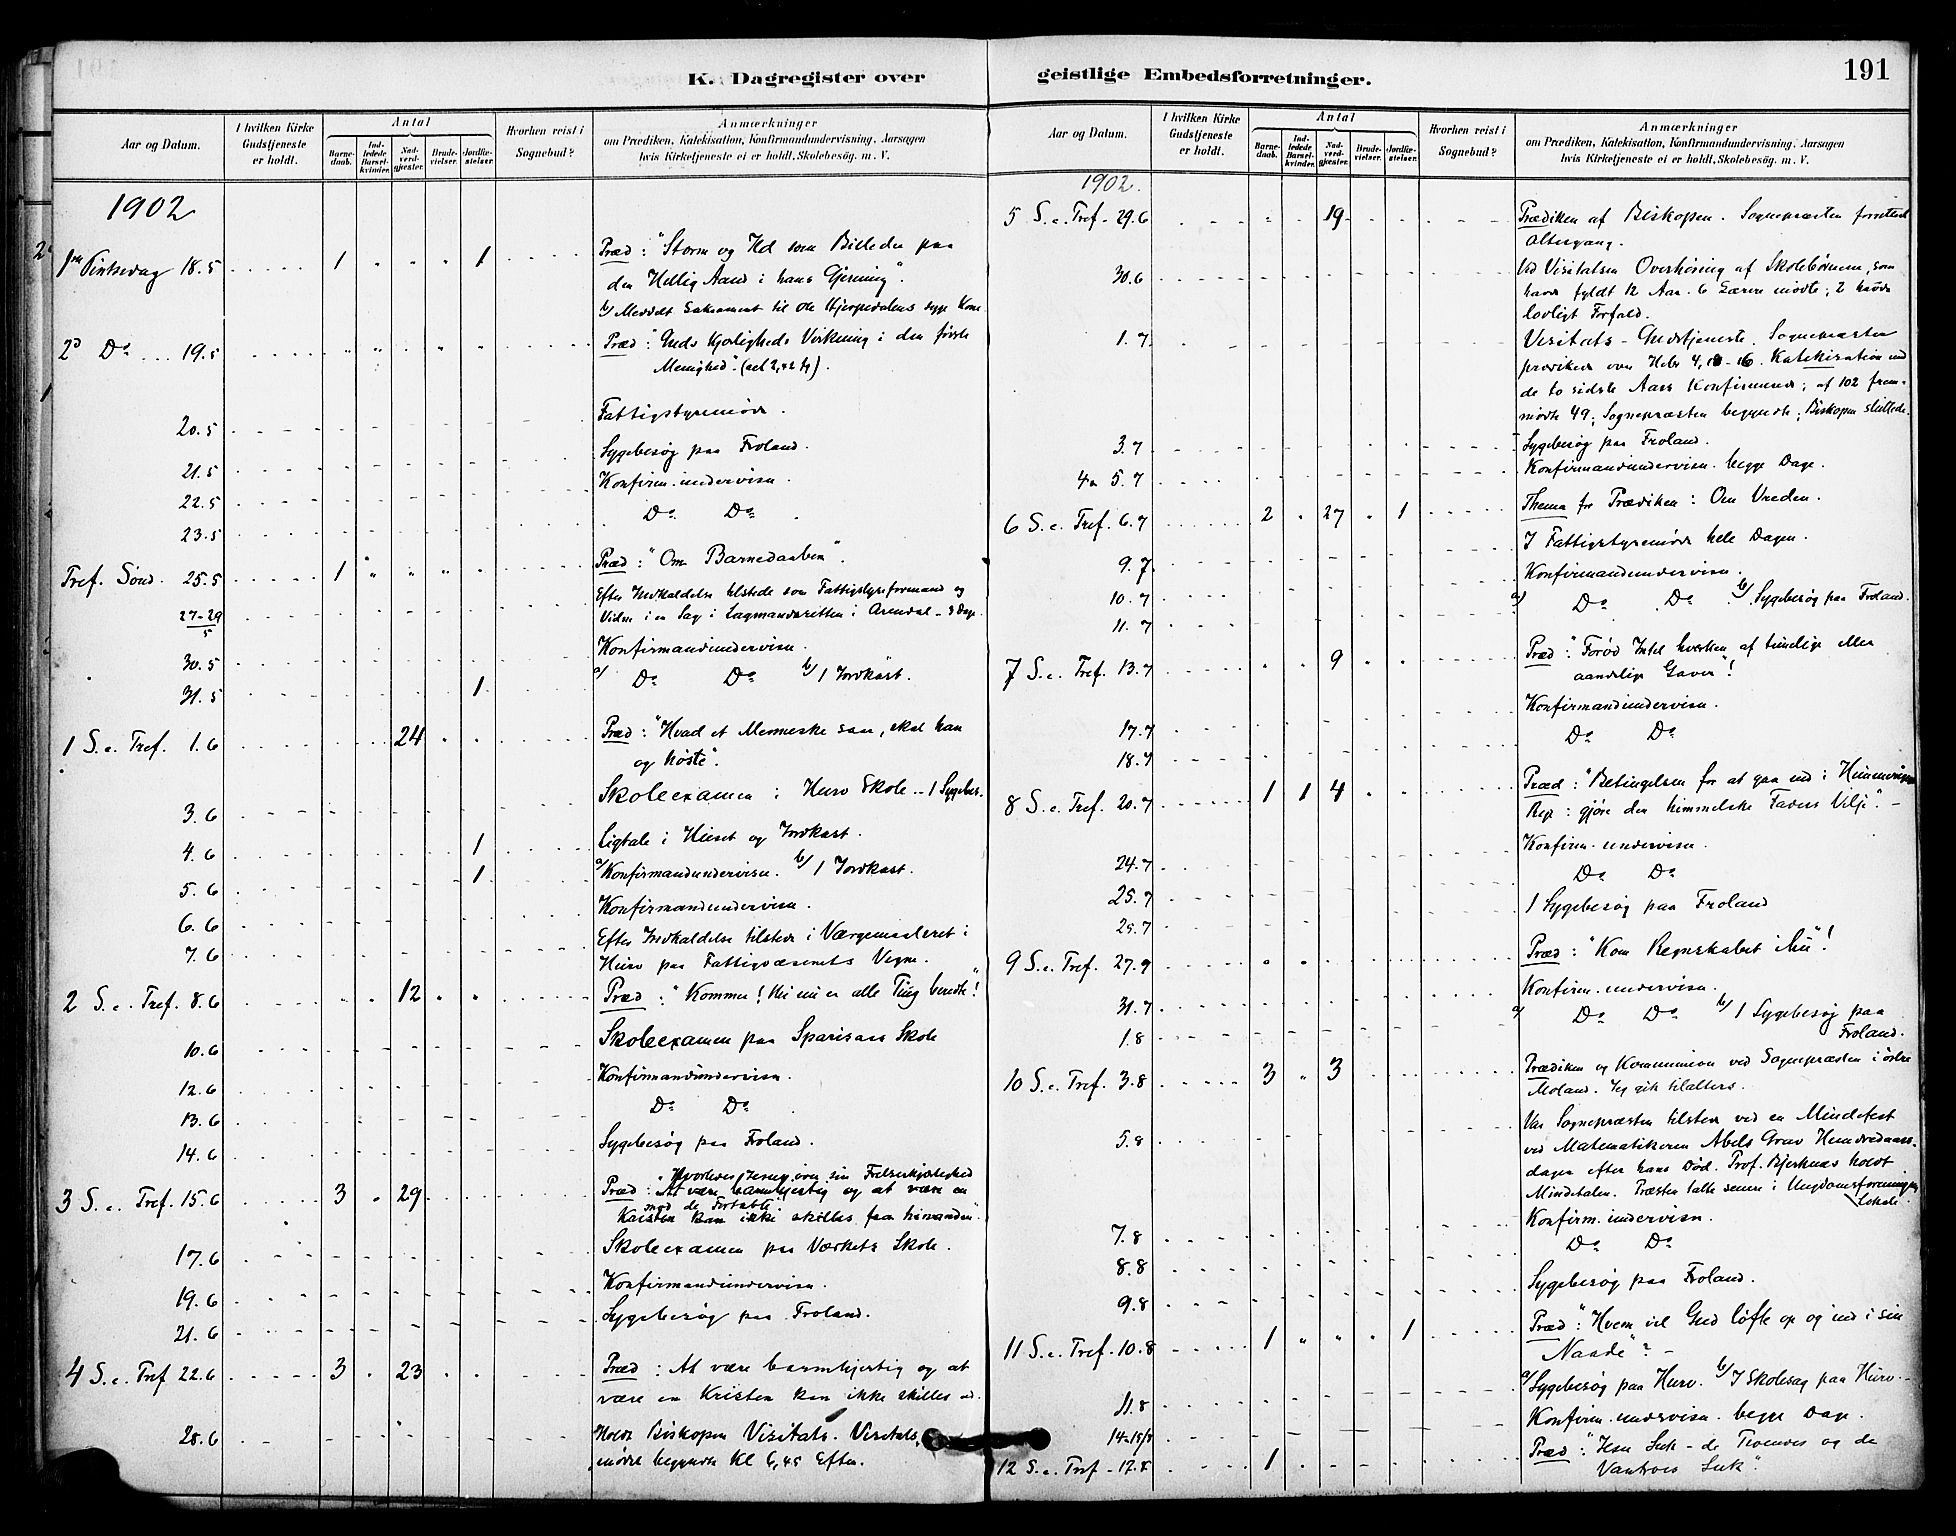 K. Dagregister over
geistlige Embedsforretninger.
191
Aar og Datum.
I hvilken Kirke Gudstjeneste er holdt.
Antal
Barne-daab.
Ind-ledede Barsel-kvinder.
Nad-verd-gjester.
Brude-vielser.
Jordfæ-stelser.
Hvorhen reist i Sognebud?
Anmærkninger
om Prædiken, Katekisation, Konfirmandundervisning, Aarsagen
hvis Kirketjeneste ei er holdt, Skolebesøg. m. V.
1902
1ste Pinsedag 18.5 1 " " " 1 Præd: "Storm og Ild som Billeder paa
den Hellig Aand i hans Gjerning".
b/ Meddelt Sakrament til
2d Do 19.5 Præd: "Guds Kjærligheds Virkning i den første
Menighed". (act 2,42 ff).
20.5 Fattigstyremøde.
21.5 Sygebesøg paa Froland.
22.5 Konfirm. undervisn.
23.5 Do Do
Tref. Sønd. 25.5 1 " " " " Præd: "Om Barnedaaben".
27-29/5 Efter Indkaldelse tilstede som Fattigstyreformand og
Vidne i en Sag i Lagmandsretten i Arendal - 3 Dage.
30.5 Konfirmandundervisn.
31.5 1 a/ Do Do b/ 1 Jordkast.
1 S. e. Tref. 1.6 24 Præd: "Hvad et Menneske saar, skal han
og høste".
3.6 Skoleexamen i Hurv Skole - 1 Sygebes.
4.6 1 Ligtale i Huset og Jordkast.
5.6 1 a/ Konfirmandundervisn. b/ 1 Jordkast.
6.6 Konfirmandundervisn.
7.6 Efter Indkaldelse tilstede i Værgemaalsret i
Hurv paa Fattigvæsenets Vegne.
2 S. e. Tref. 8.6 12 Præd: "Kommer! thi nu er alle Ting beredte"!
10.6 Skoleexamen paa Sparisaas Skole
12.6 Konfirmandundervisn.
13.6 Do Do
14.6 Sygebesøg paa Froland.
3 S. e. Tref. 15.6 3 " 29 "Hvorledes Jesus øver sin Frelserkjærlighed
Præd: At være barmhjertig og at være en
mod de Fortabte"
Kristen kan ikke skilles fra hinanden".
17.6 Skoleexamen paa Værkets Skole.
19.6 Konfirmandundervisn.
21.6 Sygebesøg paa Froland.
4 S. e. Tref 22.6 3 " 23 Præd: At være barmhjertig og at
være en Kristen kan ikke skilles ad.
28.6 Holdt Biskopen Visitats. Visitats-
mødet begyndte Kl 6,45 Efterm.
Aar og Datum.
I hvilken Kirke Gudstjeneste er holdt.
Antal
Barne-daab.
Ind-ledede Barsel-kvinder.
Nad-verd-gjester.
Brude-vielser.
Jordfæ-stelser.
Hvorhen reist i Sognebud?
Anmærkninger
om Prædiken, Katekisation, Konfirmandundervisning, Aarsagen
hvis Kirketjeneste ei er holdt, Skolebesøg. m. V.
1902.
5 S. e. Tref. 29.6 19 Prædiken af Biskopen. Sognepræsten forrettede
Altergang.
30.6 Ved Visitatsen Overhøring af Skolebørnene, som
havde fyldt 12 Aar. 6 Lærere mødte; 2 havde
lovligt Forfald.
1.7 Visitats-Gudstjeneste. Sognepræsten
prædikede over Hebr 4, -16. Katekisation med
de to sidste Aars Konfirmerede; af 102 frem-
mødte 49; Sognepræsten begyndte; Biskopen sluttede.
3.7 Sygebesøg paa Froland.
4 & 5.7 Konfirmandundervisn. begge Dage.
6 S. e. Tref. 6.7 2 " 27 " 1 Thema for Prædiken: Om Vreden.
9.7 I Fattigstyremøde hele Dagen.
10.7 Konfirmandundervisn.
11.7 a/ Do Do b/ Sygebesøg paa Froland.
7 S. e. Tref. 13.7 " " 9 " " Præd: "Forød Intet hverken af timelige eller
aandelige Gaver"!
17.7 Konfirmandundervisn.
18.7 Do Do
8 S. e. Tref. 20.7 1 1 4 Præd: "Betingelsen for at gaa ind i Himmeriges
Rige: gjøre den himmelske Faders Vilje". -
24.7 Konfirm. undervisn.
25.7 Do Do
1 Sygebesøg paa Froland
9 S. e. Tref. 27.7 Præd: "Kom Regnskabet ihu"!
31.7 Konfirm. undervisn.
1.8 a/ Do Do b/ 1 Sygebesøg paa
Froland.
10 S. e. Tref. 3.8 3 " 3 Prædiken og Kommunion ved Sognepræsten i østre
Moland. Jeg gik tilalters.
5.8 Var Sognepræsten tilstede ved en Mindefest
ved Matematikeren Abels Grav Hundredaars-
dagen efter hans Død. Prof. Bjerknæs holdt
Mindetalen. Præsten talte senere i Ungdomsforeningens
Lokale.
7.8 Konfirm. undervisn.
8.8 Do Do
9.8 Sygebesøg paa Froland.
11 S. e. Tref. 10.8 1 " " " 1 Præd: "Hvem vil Gud løfte op og ind i sin
Naade"? -
11.8 a/ Sygebesøg paa Hurv. b/ I Skolesag paa Hurv. -
14 & 15/8 Konfirm. undervisn. begge Dage.
12 S. e. Tref - 17.8 1 Præd: "Jesu Suk - de Troendes og de
Vantros Suk".